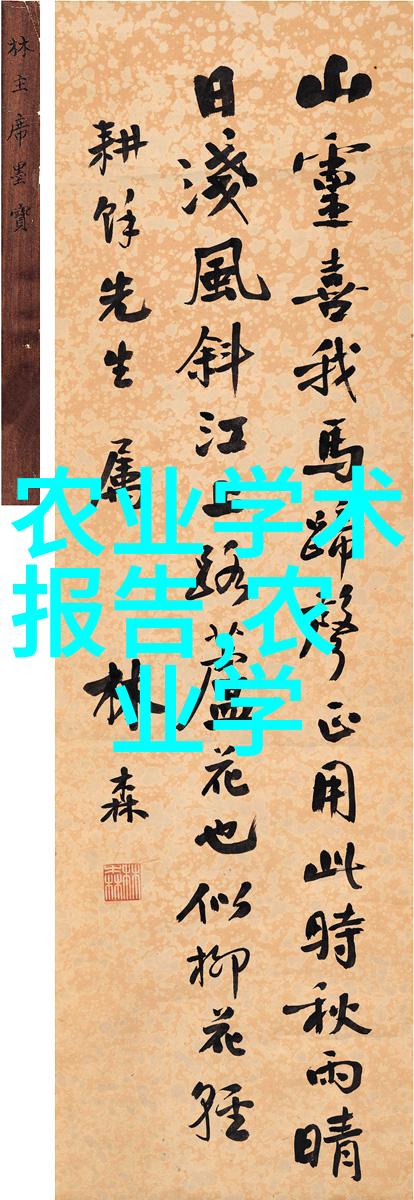 山靈喜我馬蹄聲正用此時秋雨晴
日淺風斜江上路蘆花也似柳花輕
耕餘先生属
林森
林主席墨寶
农业学术
报告,农
业学